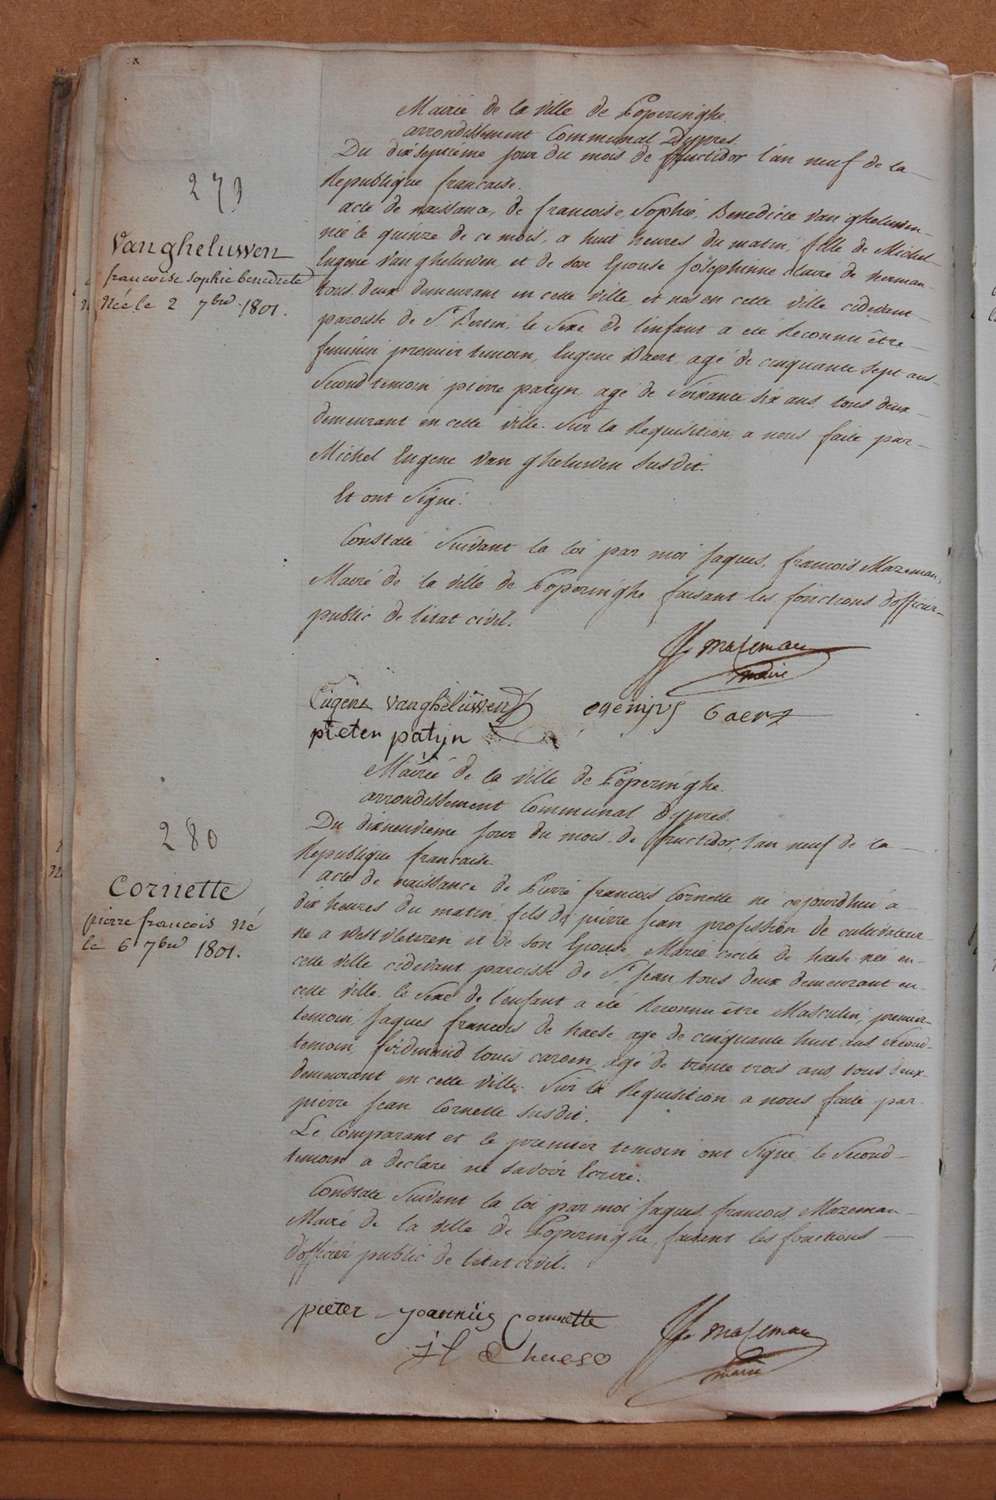 Mairie de la ville de Poperinghe
arrondissement Communal Dypres
Du dixseptieme jour du mois de fructidor l'an neuf de la
Republique francaise.
279
Vangheluwen
francoise sophie benedicte
Née le 2 7bre 1801.
acte de naissance, de francoise, Sophie, Benedicte Van gheluwen
née le quinze de ce mois, a huit heures du matin, fille de Michel
Eugene Van gheluwen et de son Epouse Josephinne claire de
tous deux demeurant en cette ville, et nés en cette ville cidevant
paroisse de St Bertin, le sexe de l'enfant a été Reconnu être
feminin premier temoin, Eugene Baert, agé de cinquante sept ans
Second temoin pierre patijn agé de Soixante six ans tous deux
demeurant en cette ville. Sur la Requisition a nous faite par
Michel Eugene Van gheluwen susdit.
Et ont Signé.
Constaté Suivant la loi par moi Jaques, francois Mazeman,
Mairé de la ville de Poperinghe faisant les fonctions d'officier
public de l'etat civil.
JF Mazeman
maire
Eugene vangheluwen
pieter patyn
Mairie de la ville de Poperinghe
arrondissement Communal Dypres
280
Cornette
pierre francois Né
le 6 7bre 1801.
Du dixneuvieme jour du mois de fructidor, l'an neuf de la
Republique francaise
acte de naissance de Pierre francois Cornette né cejourdhui a
dix heures du matin, fils de pierre jean profession de cultivateur
né a Westvleteren et de son Epouse Marie cecile de haese née en
cette ville cidevant paroisse de St Jean, tous deux demeurant en
cette ville. le Sexe de l'enfant a été Reconnu être Masculin, premier
temoin Jaques francois de haese agé de cinquante huit ans second
temoin ferdinand louis caroen, agé de trente trois ans tous deux
demeurant en cette ville. Sur la Requisition a nous faite par
pierre Jean Cornette susdit.
Le Comparant et le premier temoin ont Signé le Second
temoin a declaré ne savoir Ecrire.
Constaté Suivant la loi par moi Jaques, francois, Mazeman
Mairé de la ville de Poperinghe, faisent les fonctions
d'officier public de l'etat civil.
pieter joannis Cornette
JF Mazeman
maire